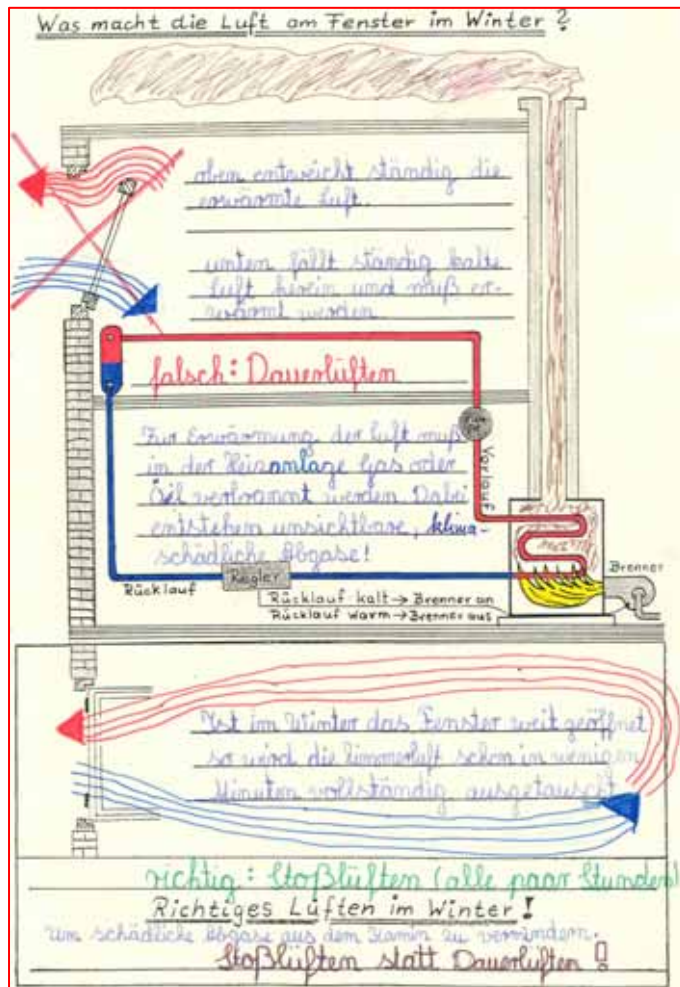 Was macht die Luft am Fenster im Winter?
oben entweicht ständig die
erwärmte Luft.
unten fällt ständig kalte
Luft herein und muß er-
wärmt werden
falsch: Dauerlüften
Zur Erwärmung der Luft muß
in der Heizanlage Gas oder
Öl verbrannt werden. Dabei
entstehen unsichtbare, klima-
schädliche Abgase!
Vorlauf
Brenner
Regler
Rücklauf
Rücklauf kalt → Brenner an
Rücklauf warm → Brenner aus
Ist im Winter das Fenster weit geöffnet
so wird die Zimmerluft schon in wenigen
Minuten vollständig ausgetauscht
richtig: Stoßlüften (alle paar Stunden)
Richtiges Lüften im Winter!
um schädliche Abgase aus dem Kamin zu vermindern.
Stoßlüften statt Dauerlüften!